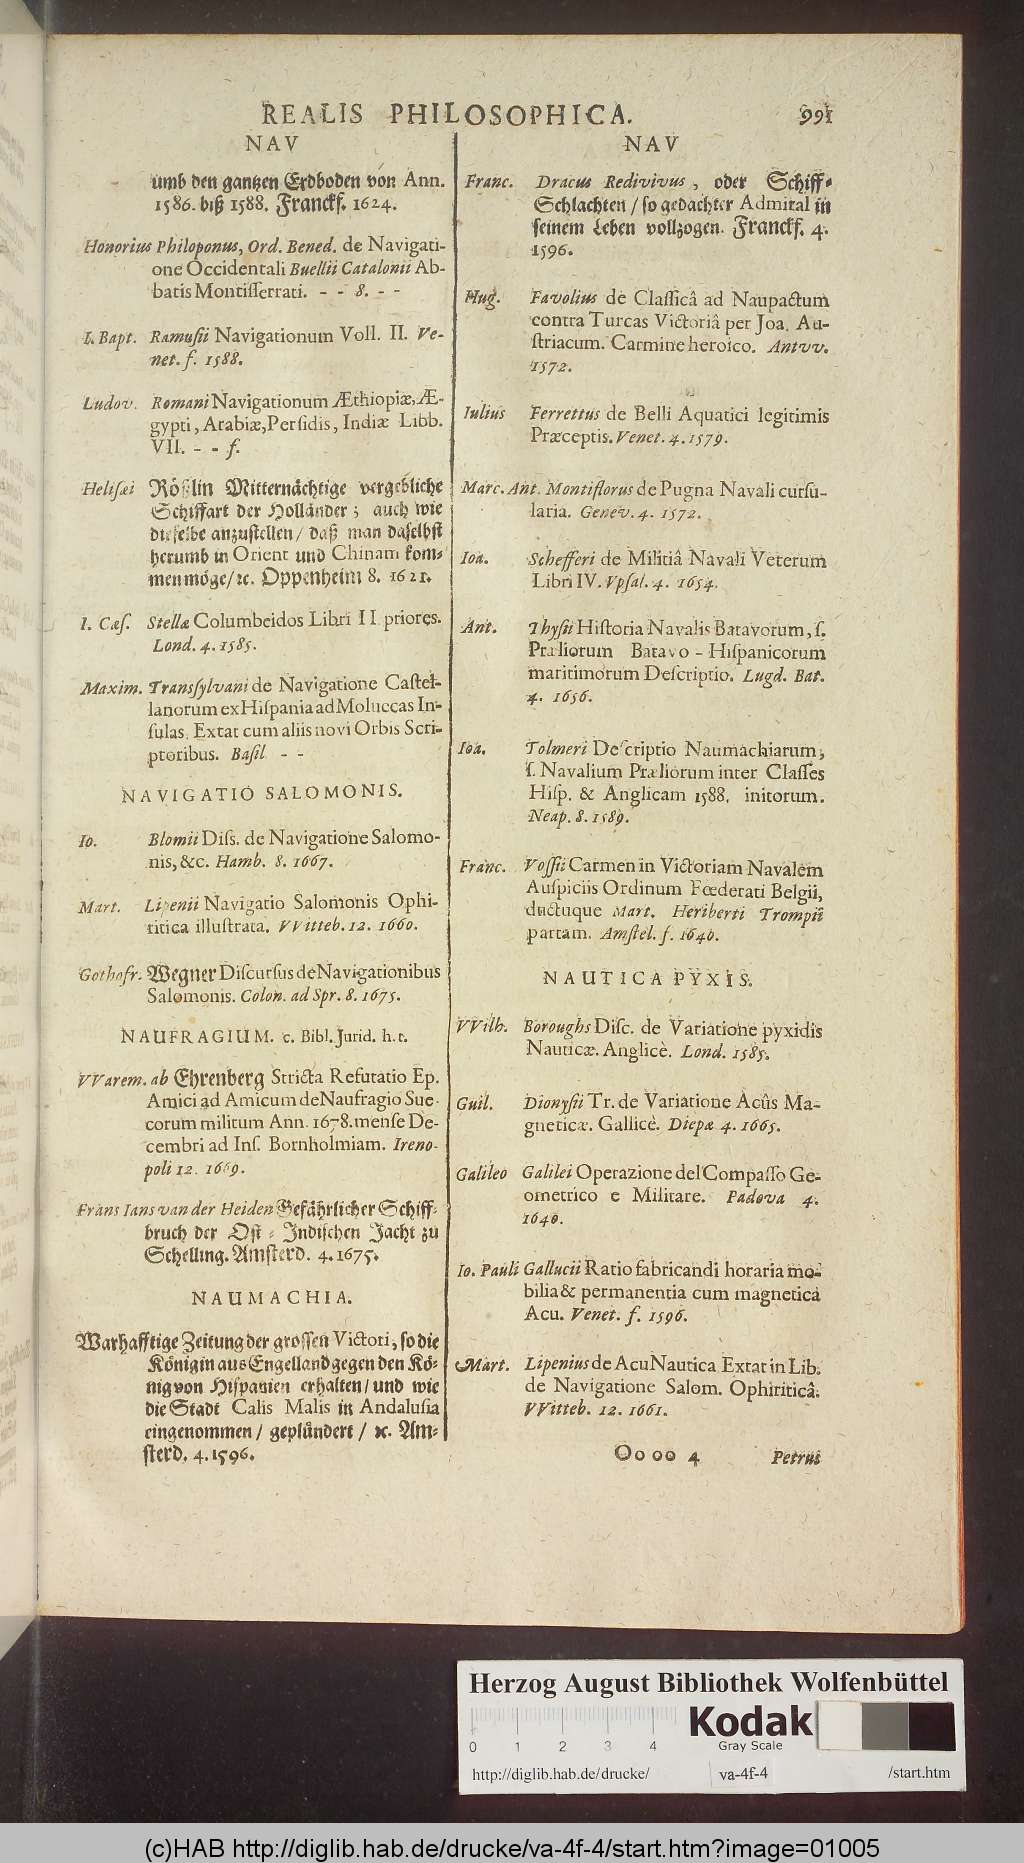 REALIS PHILOSOPHICA. 991
NAV
umb den gantzen Erdboden von Ann.
1586. biß 1588. Franckf. 1624.
Honorius Philoponus, Ord. Bened. de Navigati-
one Occidentali Buellii Catalonii Ab-
batis Montisſerrati. - - 8. - -
I. Bapt. Ramuſii Navigationum Voll. II. Ve-
net. f. 1588.
Ludov. Romani Navigationum Æthiopiæ, Æ-
gypti, Arabiæ, Perſidis, Indiæ Libb.
VII. - - f.
Heliſæi Rößlin Mitternächtige vergebliche
Schiffart der Holländer; auch wie
dieſelbe anzuſtellen / daß man daſelbſt
herumb in Orient und Chinam kom-
men möge/ ꝛc. Oppenheim 8. 1621.
I. Cæſ. Stellæ Columbeidos Libri II priores.
Lond. 4. 1585.
Maxim. Transſylvani de Navigatione Caſtel-
lanorum ex Hiſpania ad Moluccas In-
ſulas. Extat cum aliis novi Orbis Scri-
ptoribus. Baſil - -
NAVIGATIO SALOMONIS.
Io. Blomii Diſs. de Navigatione Salomo-
nis, &c. Hamb. 8. 1667.
Mart. Lipenii Navigatio Salomonis Ophi-
ritica illuſtrata. VVitteb. 12. 1660.
Gothofr. Wegner Diſcurſus de Navigationibus
Salomonis. Colon. ad Spr. 8. 1675.
NAUFRAGIUM. c. Bibl. Jurid. h. t.
VVarem. ab Ehrenberg Stricta Refutatio Ep.
Amici ad Amicum de Naufragio Sue-
corum militum Ann. 1678. menſe De-
cembri ad Inſ. Bornholmiam. Ireno-
poli 12. 1669.
Frans Ians van der Heiden Gefährlicher Schiff-
bruch der Oſt-Indiſchen Jacht zu
Schelling. Amſterd. 4. 1675.
NAUMACHIA.
Warhafftige Zeitung der groſſen Victori, ſo die
Königin aus Engelland gegen den Kö-
nig von Hiſpanien erhalten / und wie
die Stadt Calis Malis in Andaluſia
eingenommen / geplündert / ꝛc. Am-
ſterd. 4. 1596.
NAV
Franc. Dracus Redivivus, oder Schiff-
Schlachten / ſo gedachter Admiral in
ſeinem Leben vollzogen. Franckf. 4.
1596.
Hug. Favolius de Claſſicâ ad Naupactum
contra Turcas Victoriâ per Joa. Au-
ſtriacum. Carmine heroico. Antvv.
1572.
Iulius Ferrettus de Belli Aquatici legitimis
Præceptis. Venet. 4. 1579.
Marc. Ant. Montiflorus de Pugna Navali curſu-
laria. Genev. 4. 1572.
Ioa. Schefferi de Militiâ Navali Veterum
Libri IV. Vpſal. 4. 1654.
Ant. Thyſii Hiſtoria Navalis Batavorum, ſ.
Præliorum Batavo-Hiſpanicorum
maritimorum Deſcriptio. Lugd. Bat.
4. 1656.
Ioa. Tolmeri Deſcriptio Naumachiarum,
ſ. Navalium Præliorum inter Claſſes
Hiſp. & Anglicam 1588. initorum.
Neap. 8. 1589.
Franc. Voſſii Carmen in Victoriam Navalem
Auſpiciis Ordinum Fœderati Belgii,
ductuque Mart. Heriberti Trompii
partam. Amſtel. f. 1640.
NAUTICA PYXIS.
VVilh. Boroughs Diſc. de Variatione pyxidis
Nauticæ. Anglicè. Lond. 1585.
Guil. Dionyſii Tr. de Variatione Acûs Ma-
gneticæ. Gallicè. Diepæ 4. 1665.
Galileo Galilei Operazione del Compaſſo Ge-
ometrico e Militare. Padova 4.
1640.
Io. Pauli Gallucii Ratio fabricandi horaria mo-
bilia & permanentia cum magnetica
Acu. Venet. f. 1596.
Mart. Lipenius de Acu Nautica Extat in Lib.
de Navigatione Salom. Ophiriticâ.
VVitteb. 12. 1661.
Oo oo 4 Petrus
Herzog August Bibliothek Wolfenbüttel
0 1 2 3 4
Kodak
Gray Scale
http://diglib.hab.de/drucke/ va-4f-4 /start.htm
(c)HAB http://diglib.hab.de/drucke/va-4f-4/start.htm?image=01005